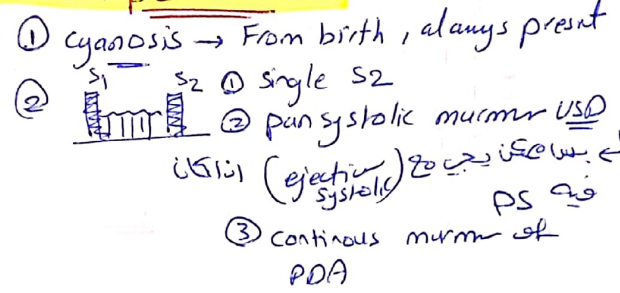 ① cyanosis → From birth, always presnt
② S1 S2 ① single S2
② pan systolic murmur VSD
← بس ممكن يجي مع (ejection systolic) اذا كان
فيه PS
③ continous murmur of
PDA